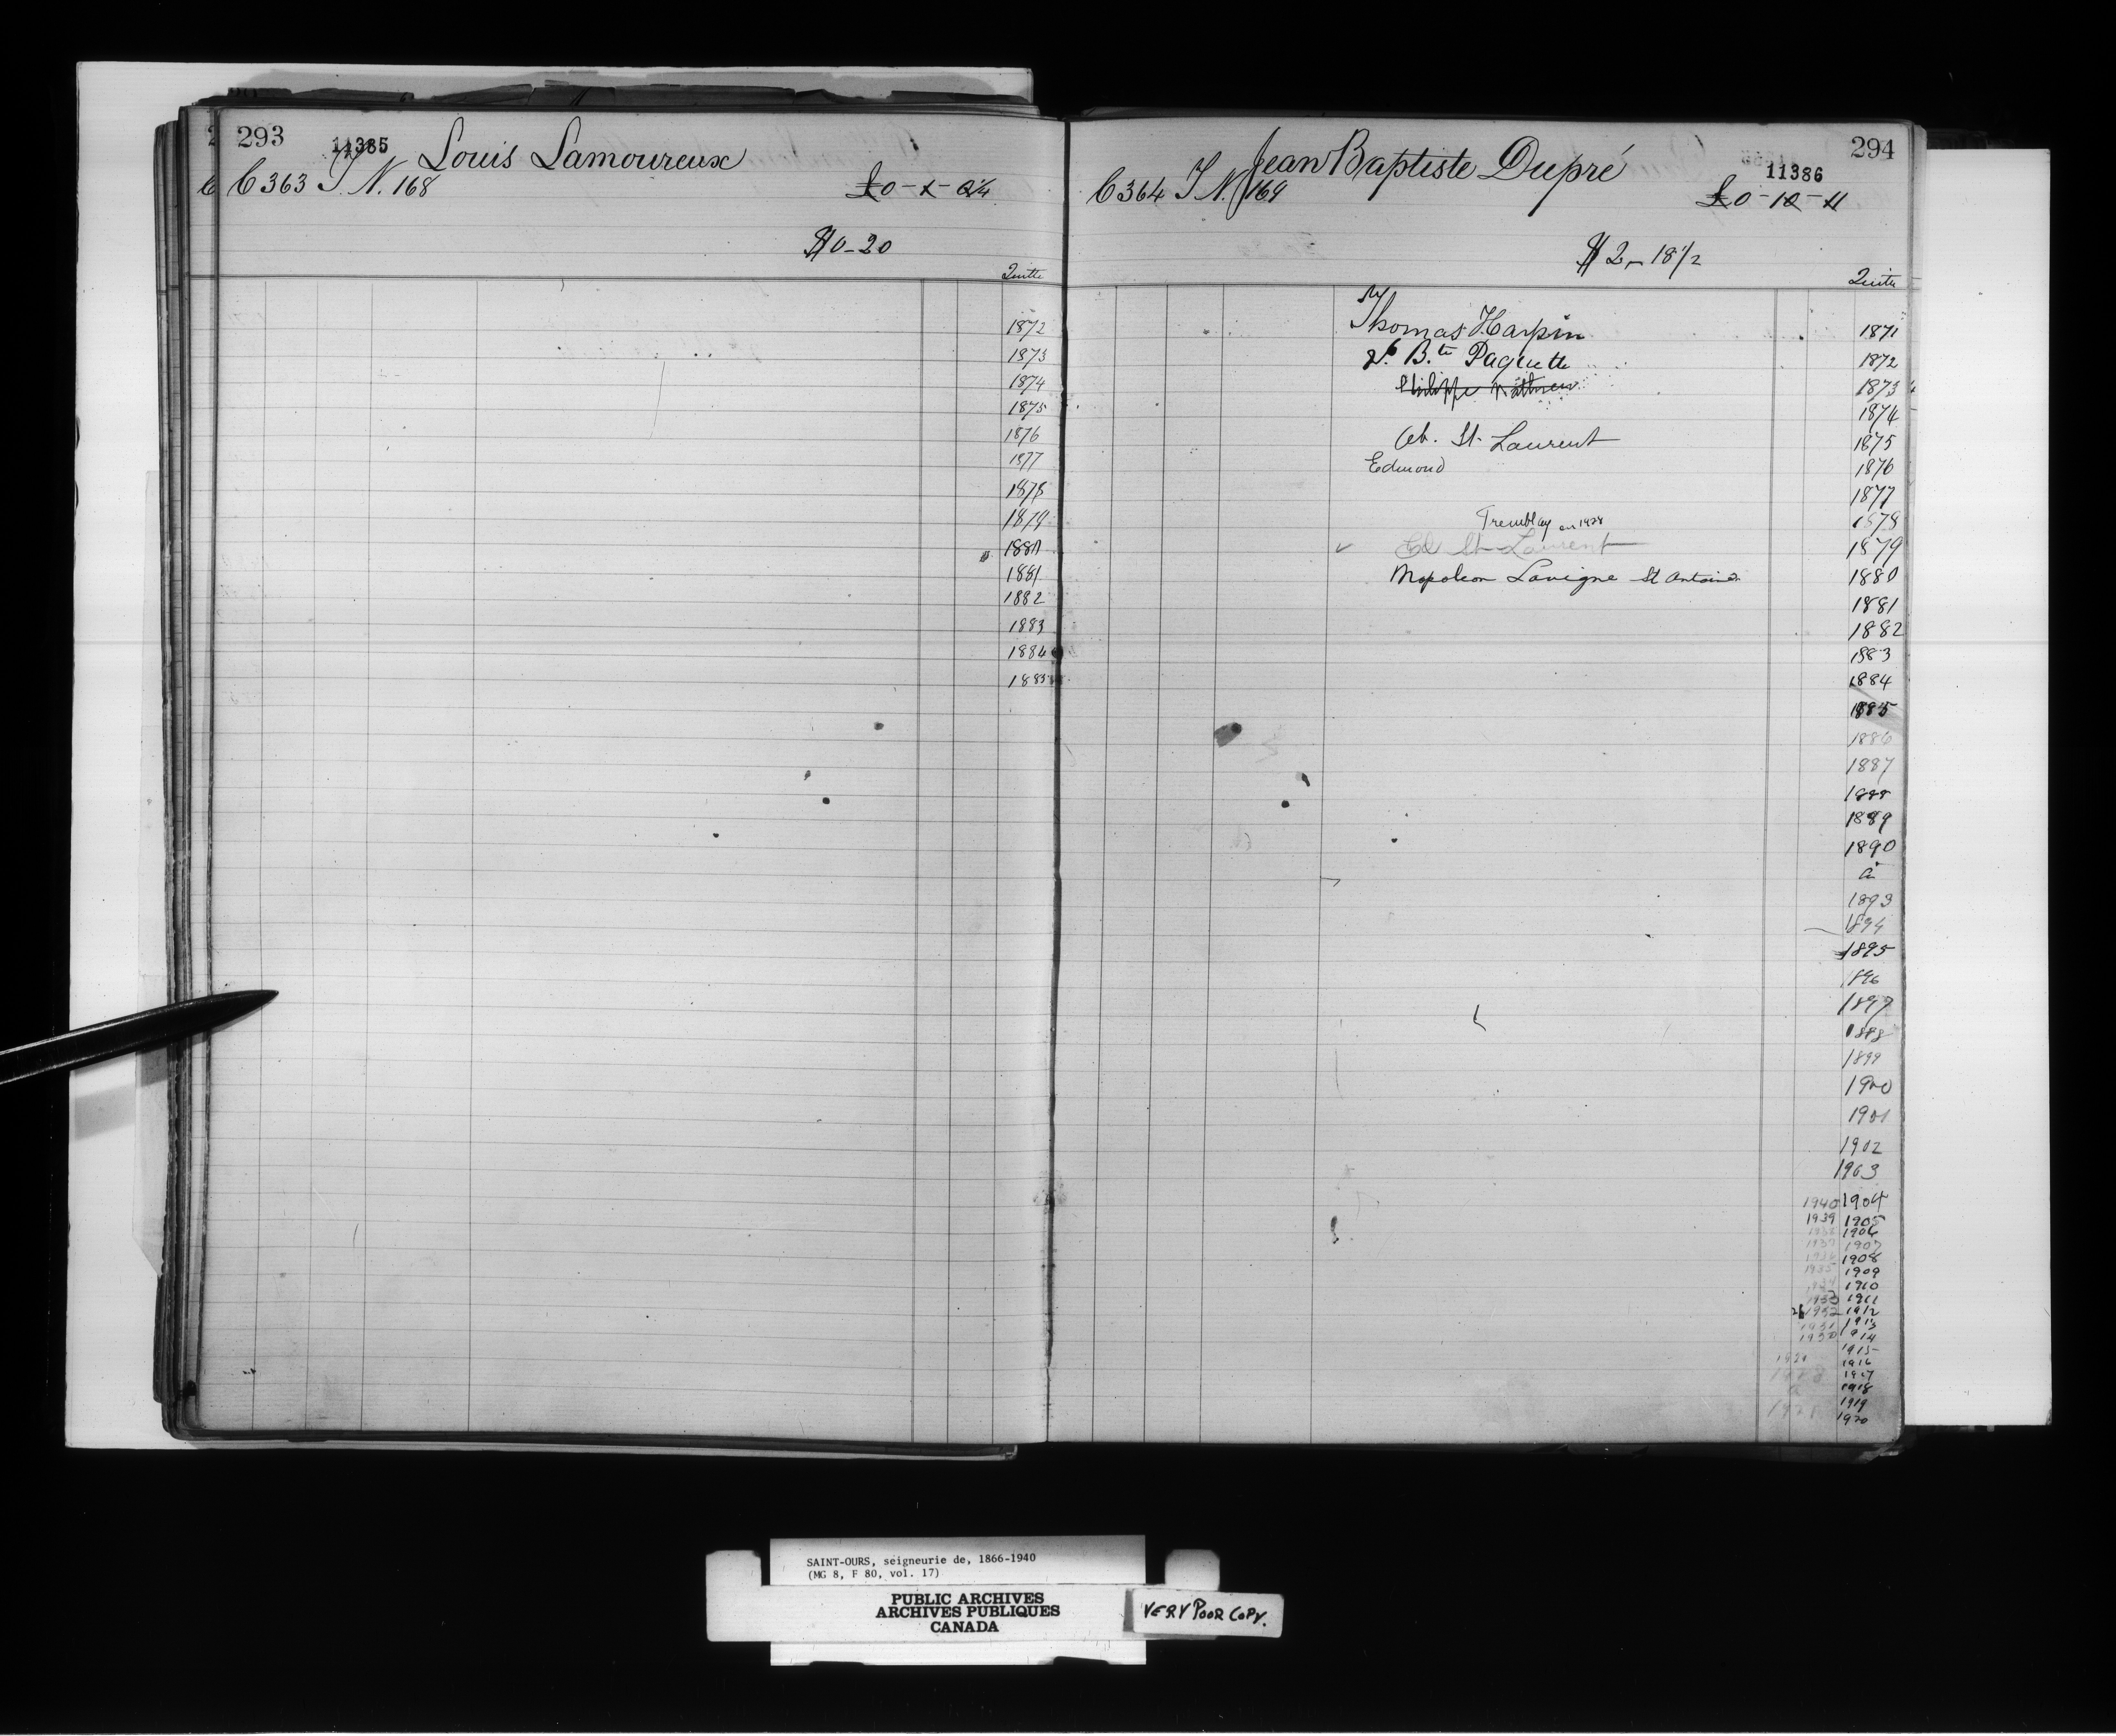 293
11385
Louis Lamoureux
C 363 T N. 168
£0-1-0¼
$0-20
Quitte
1872
1873
1874
1875
1876
1877
1878
1879
1880
1881
1882
1883
1884
1885
294
11386
Jean Baptiste Dupré
C 364 T N. 169
£0-10-11
$2-18½
Quitte
Thomas Harpin
Bte Paquette
Philippe Mathieu
St Laurent
Edmond
Tremblay en 1928
Ed St Laurent
Napoleon Lavigne St Antoine
1871
1872
1873
1874
1875
1876
1877
1878
1879
1880
1881
1882
1883
1884
1885
1886
1887
1888
1889
1890
à
1893
1894
1895
1896
1897
1898
1899
1900
1901
1902
1903
1940 1904
1939 1905
1938 1906
1937 1907
1936 1908
1935 1909
1934 1910
1933 1911
1932 1912
1931 1913
1930 1914
1915
1916
1917
1918
1919
1920
SAINT-OURS, seigneurie de, 1866-1940
(MG 8, F 80, vol. 17)
PUBLIC ARCHIVES
ARCHIVES PUBLIQUES
CANADA
VERY POOR COPY.